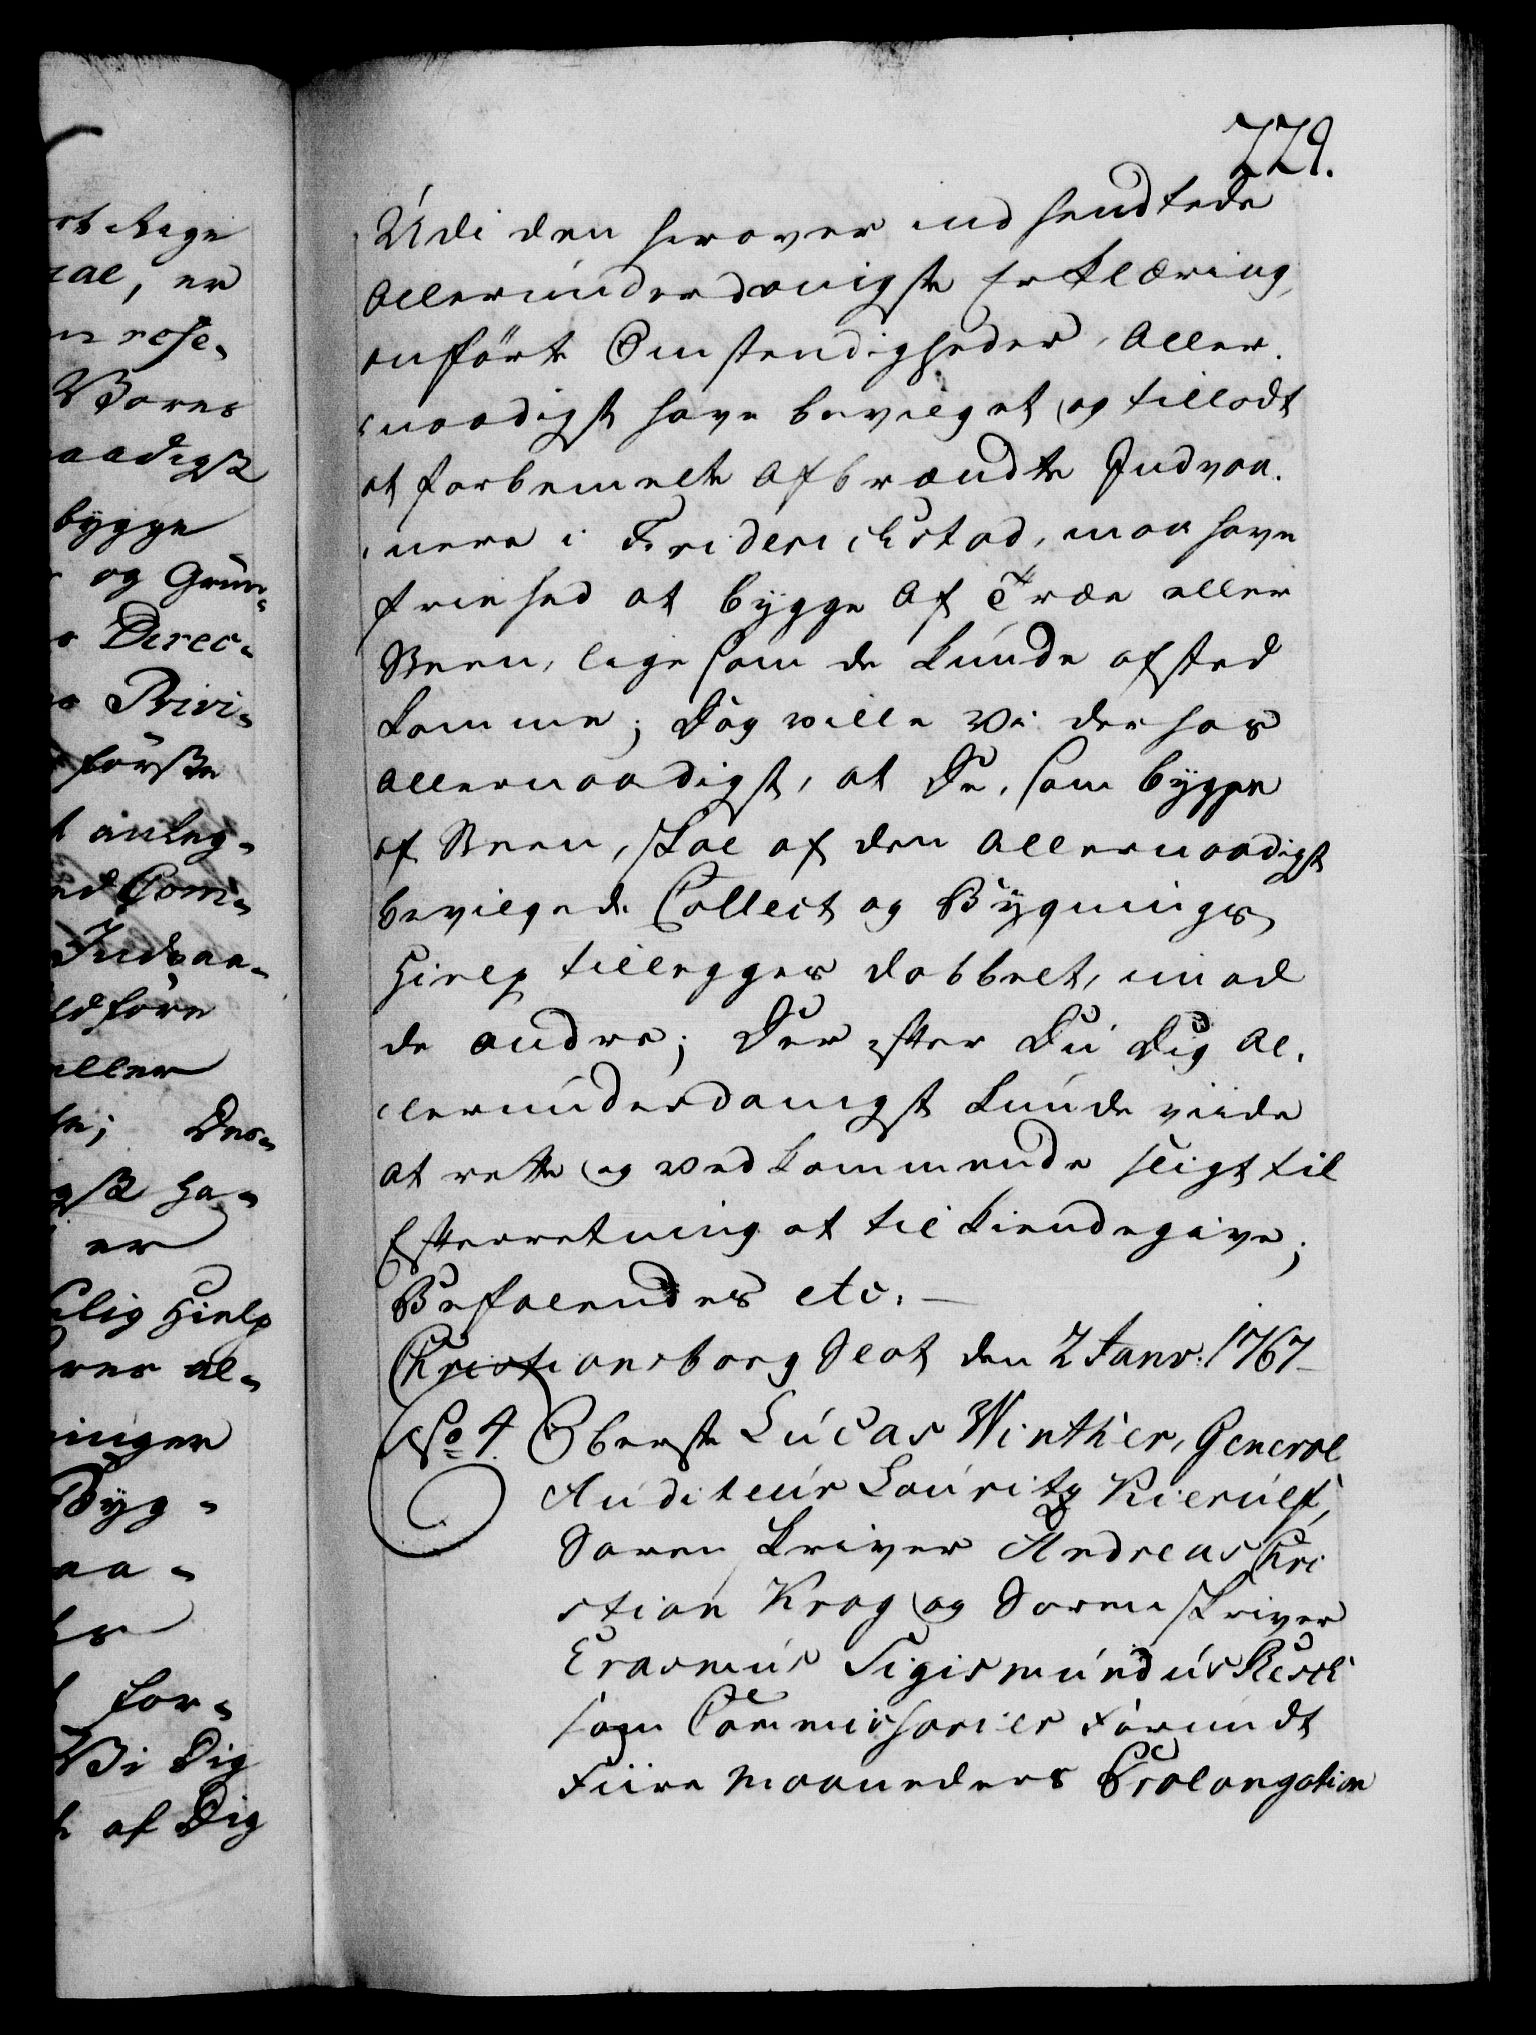 229.
Udi den herover indsendtede
allerunderdanigste Erklæring,
anførte Omstendigheder, Aller-
naadigst have bevilget og tilladt
at forbemelte Afbrændte Indvaa-
nere i Friderichstad, maa have
friehed at bygge Af Træe eller
Steen, lige som de kunde afsted
komme; Dog wille Vi derhos
allernaadigst, at De, som bygge
af Steen, skal af den allernaadigst
bevilgede Collect og Bygnings
Hielp tillegges dobbelt, imod
de andre; Der efter Du Dig al-
lerunderdanigst kunde viide
at rette og vedkommende sligt til
Efterretning at tilkiendegive;
Befalendes etc.
Christiansborg Slot den 2 Janv: 1767
No 4. Oberste Lucas Winther, General
Auditeur Lauritz Kierulf,
Soren skriver Andreas Chri
stian Krog og Sorenskriver
Erasmus Sigismundus Resch
som Commissarier forundt
Fiire Maaneders Prolongation
rt Rige
al, er
n rese-
Vores
aadigst
bygge
og Grun-
Direc-
Privi-
første
anleg-
ed Com-
Indvaa-
ldføre
eller
Des-
gst ha-
er
lig Hielp
res al-
ninger
Byg-
aa-
for-
Vi Dig
af Dig